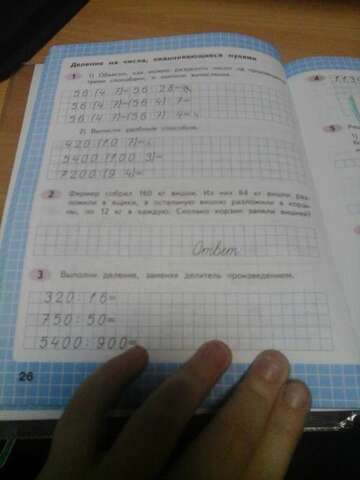 Деление на числа, оканчивающиеся нулями
1 1) Объясни, как можно разделить число на произведение
тремя способами, и закончи вычисления.
56:(4·7)=56:28=
56:(4·7)=(56:4):7=
56:(4·7)=(56:7):4=
2) Вычисли удобным способом.
420:(10·7)=
5400:(100·3)=
7200:(9·4)=
2 Фермер собрал 160 кг вишни. Из них 64 кг вишни раз-
ложили в ящики, а остальную вишню разложили в корзи-
ны, по 12 кг в каждую. Сколько корзин заняли вишней?
Ответ
3 Выполни деление, заменяя делитель произведением.
320:16=
750:50=
5400:900=
26
4
5